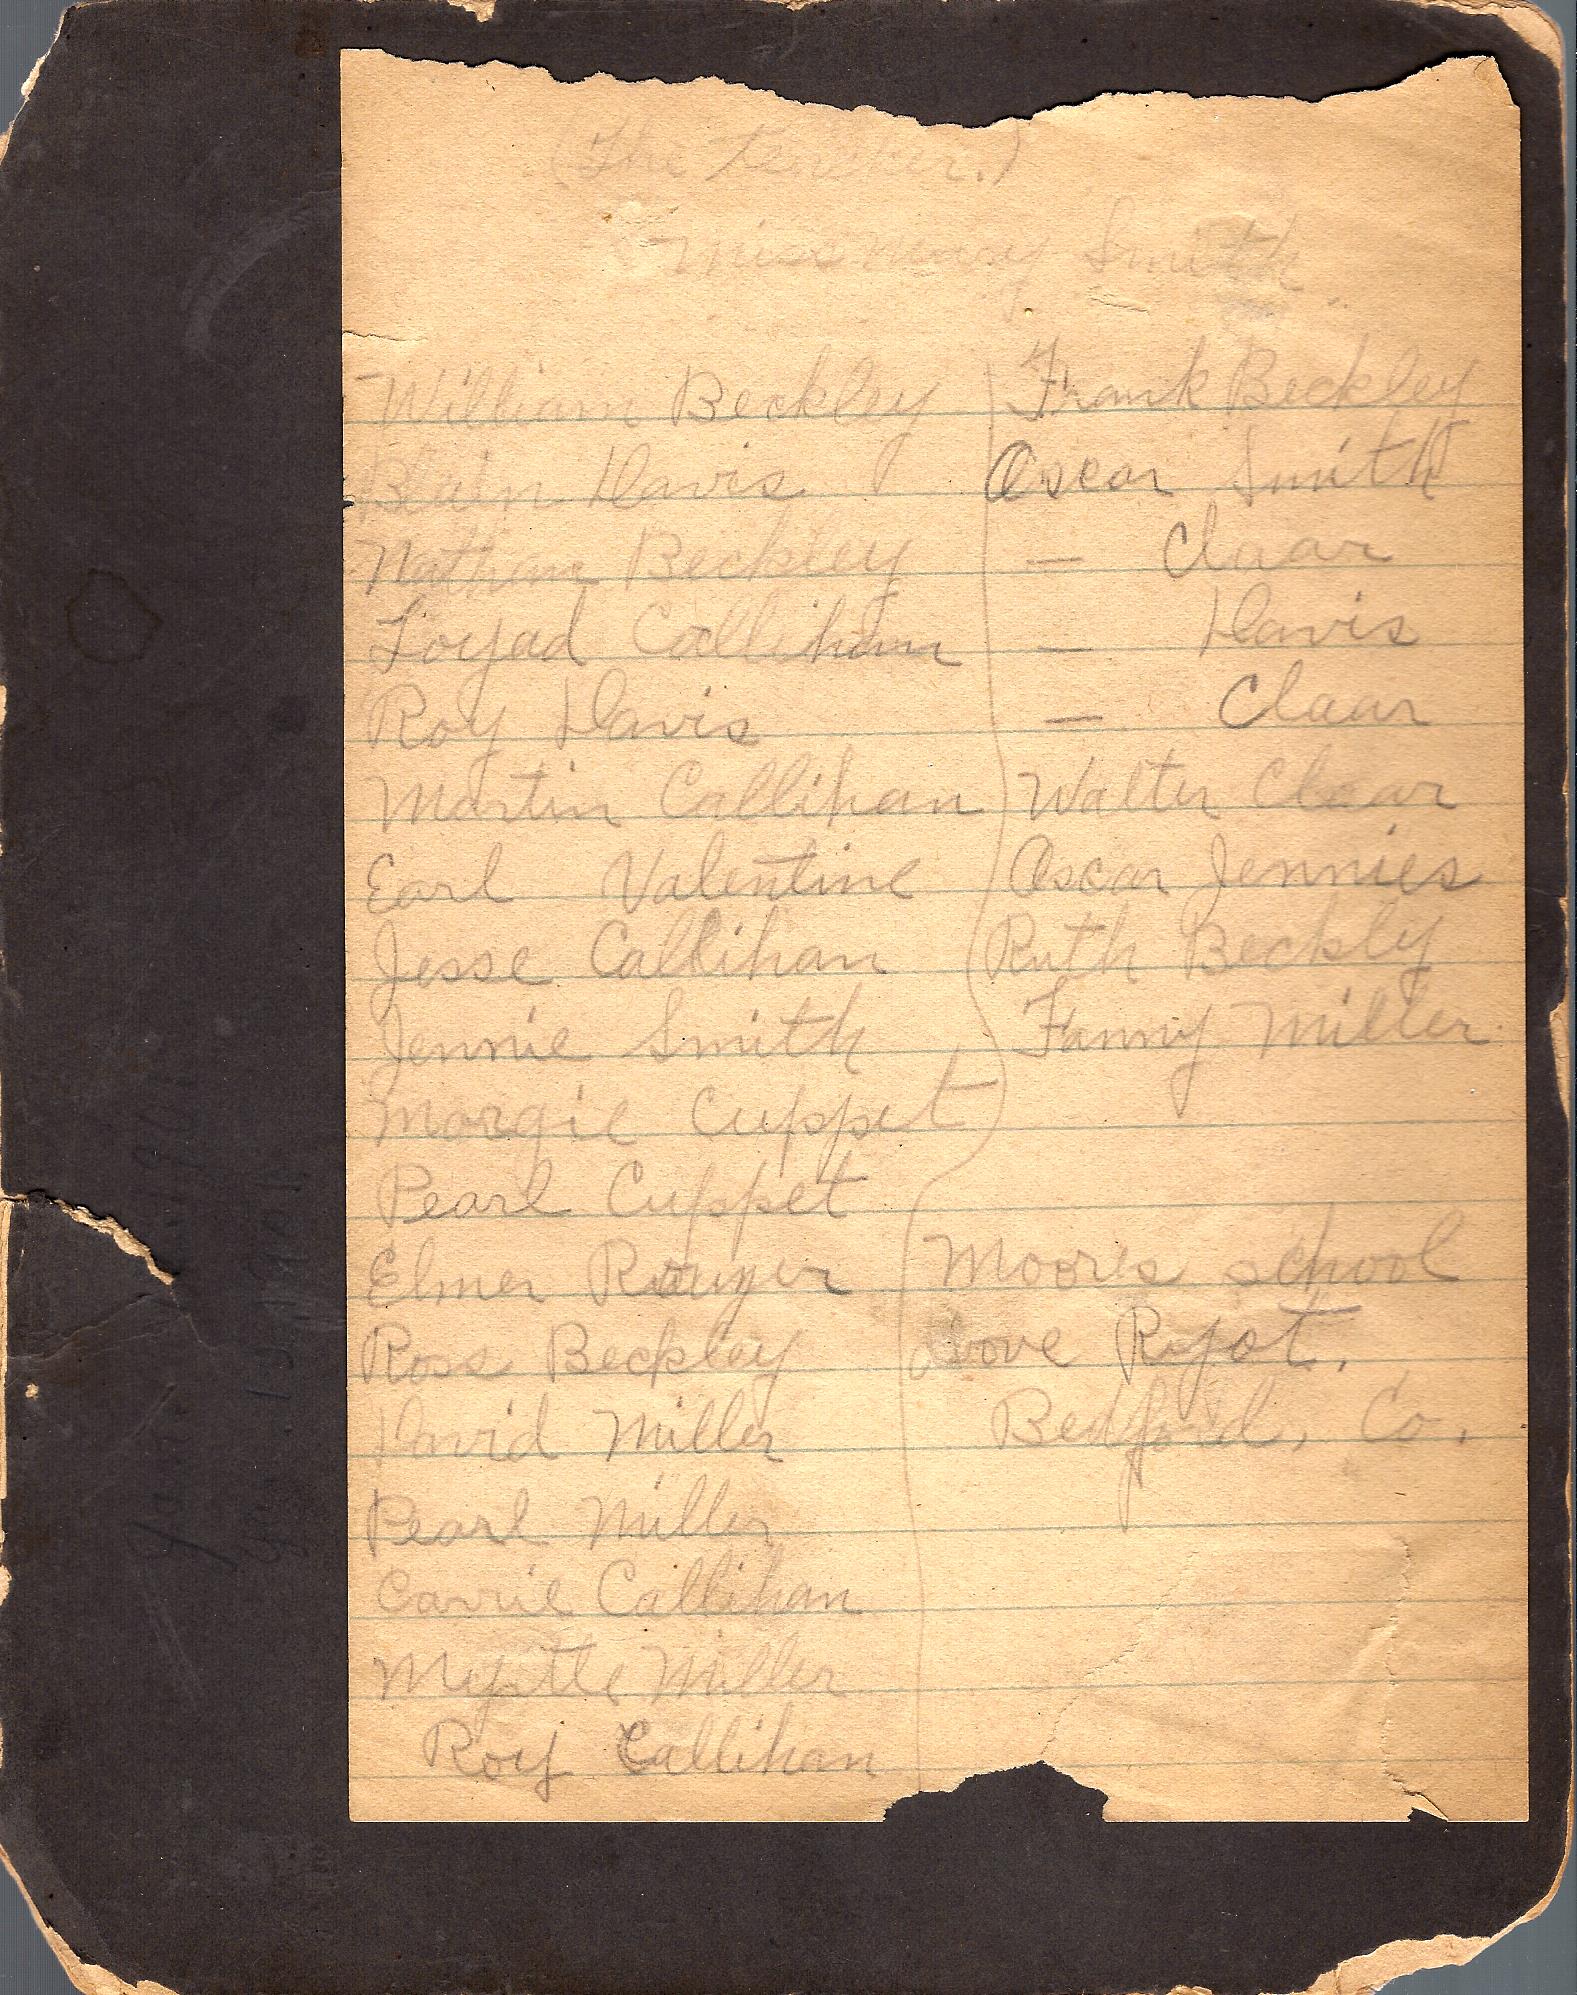 (The teacher.)
Miss Mary Smith
William Beckley
Blain Davis
Nathan Beckley
Loyad Callihan
Roy Davis
Martin Callihan
Earl Valentine
Jesse Callihan
Jennie Smith
Margie Cuppet
Pearl Cuppet
Elmer
Ross Beckley
David Miller
Pearl Miller
Carrie Callihan
Myrtle Miller
Roy Callihan
Frank Beckley
Oscar Smith
— Claar
— Davis
— Claar
Walter Claar
Oscar Jennies
Ruth Beckly
Fanny Miller
Moor's school
Bedford, Co.